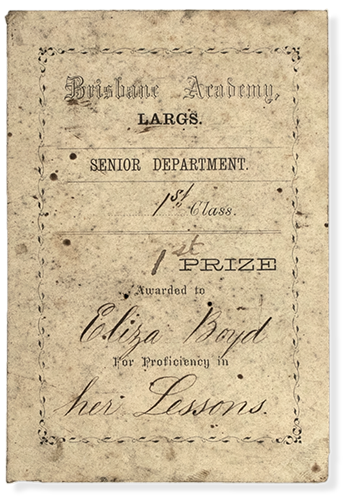 Brisbane Academy,
LARGS.
SENIOR DEPARTMENT.
1st Class.
1st PRIZE
Awarded to
Eliza Boyd
For Proficiency in
her Lessons.